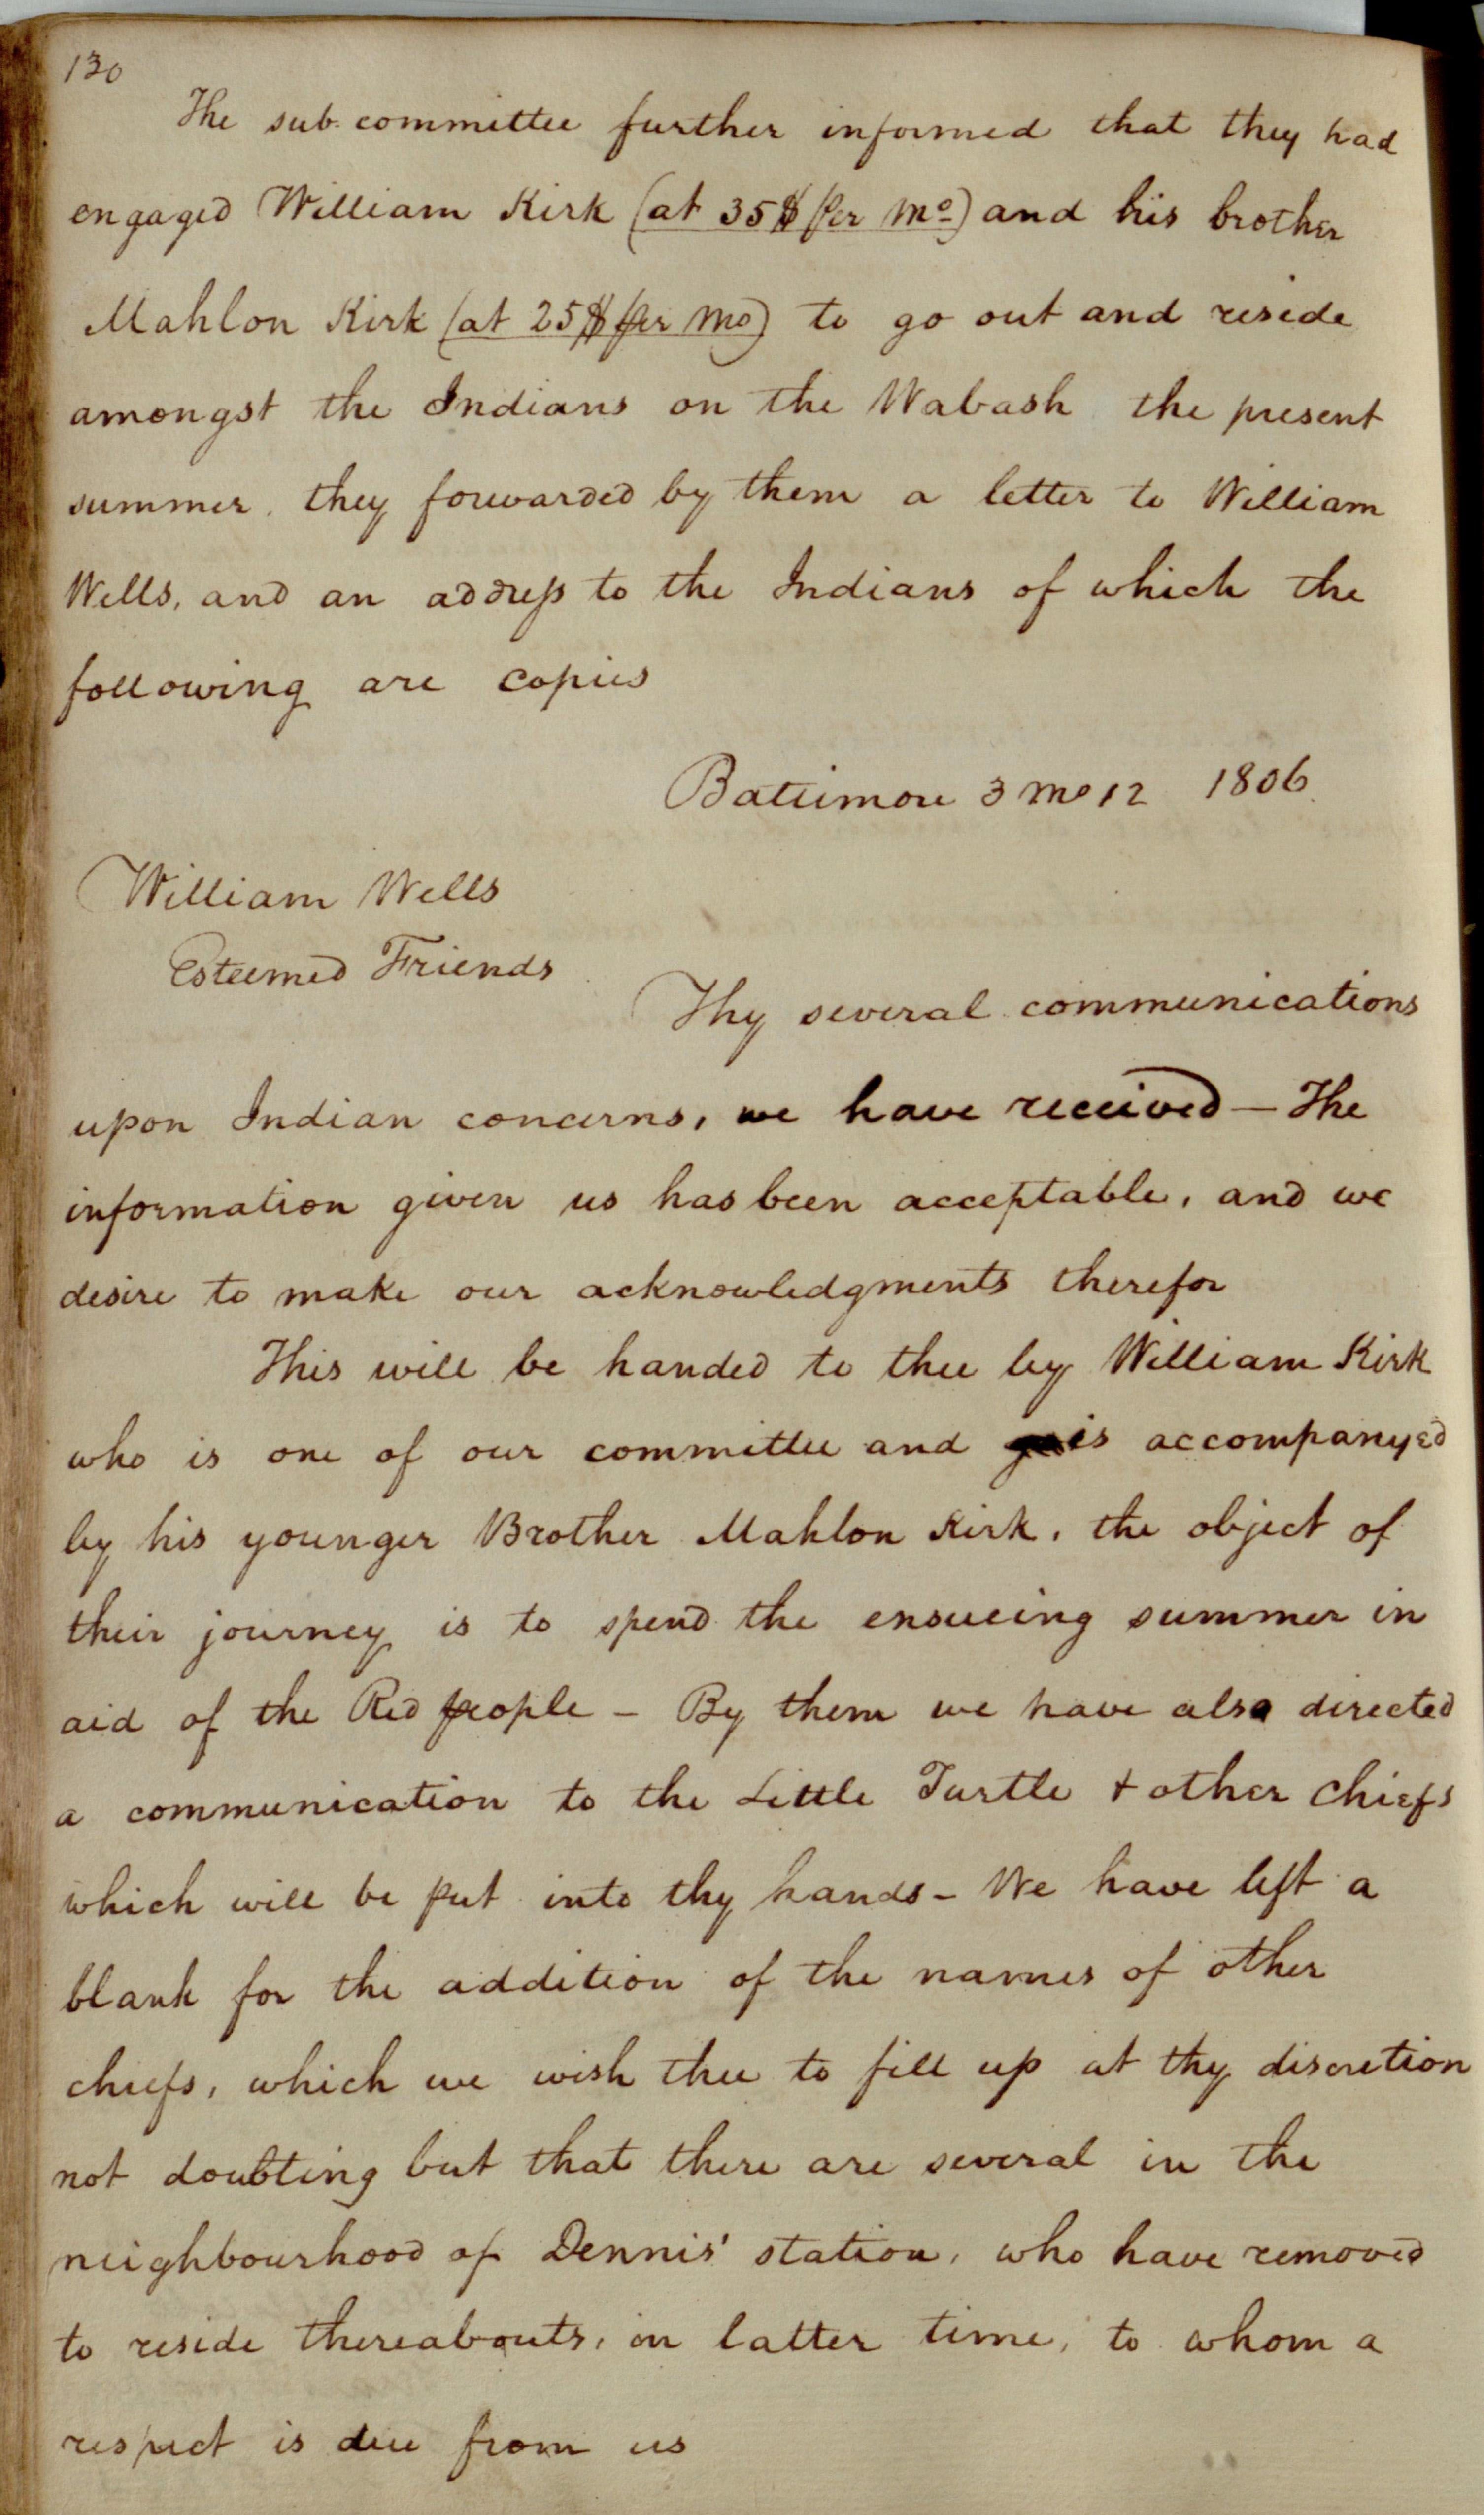 130
The sub. committee further informed that they had
engaged William Kirk (at 35$ per mo) and his brother
Mahlon Kirk (at 25$ per mo) to go out and reside
amongst the Indians on the Wabash the present
summer. they forwarded by them a letter to William
Wells, and an address to the Indians of which the
following are copies
Baltimore 3 mo 12 1806.
William Wells
Esteemed Friends
Thy several communications
upon Indian concerns, we have received — The
information given us has been acceptable, and we
desire to make our acknowledgments therefor
This will be handed to thee by William Kirk
who is one of our committee and is accompanyed
by his younger Brother Mahlon Kirk, the object of
their journey is to spend the ensueing summer in
aid of the Red people – By them we have also directed
a communication to the Little Turtle + other Chiefs
which will be put into thy hands – We have left a
blank for the addition of the names of other
chiefs, which we wish thee to fill up at thy discretion
not doubting but that there are several in the
neighbourhood of Dennis' station, who have removed
to reside thereabouts, in latter time, to whom a
respect is due from us